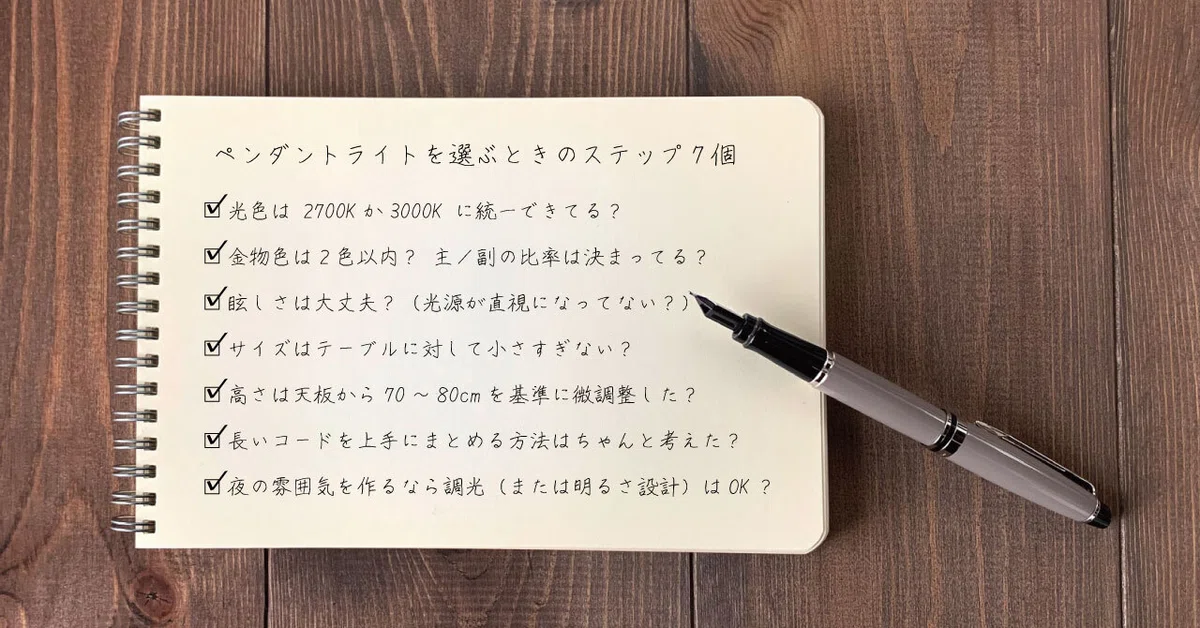 ペンダントライトを選ぶときのステップ7個
☑光色は 2700Kか3000K に統一できてる？
☑金物色は2色以内？ 主/副の比率は決まってる？
☑眩しさは大丈夫？（光源が直視になってない？）
☑サイズはテーブルに対して小さすぎない？
☑高さは天板から70～80cmを基準に微調整した？
☑長いコードを上手にまとめる方法はちゃんと考えた？
☑夜の雰囲気を作るなら調光（または明るさ設計）はOK？